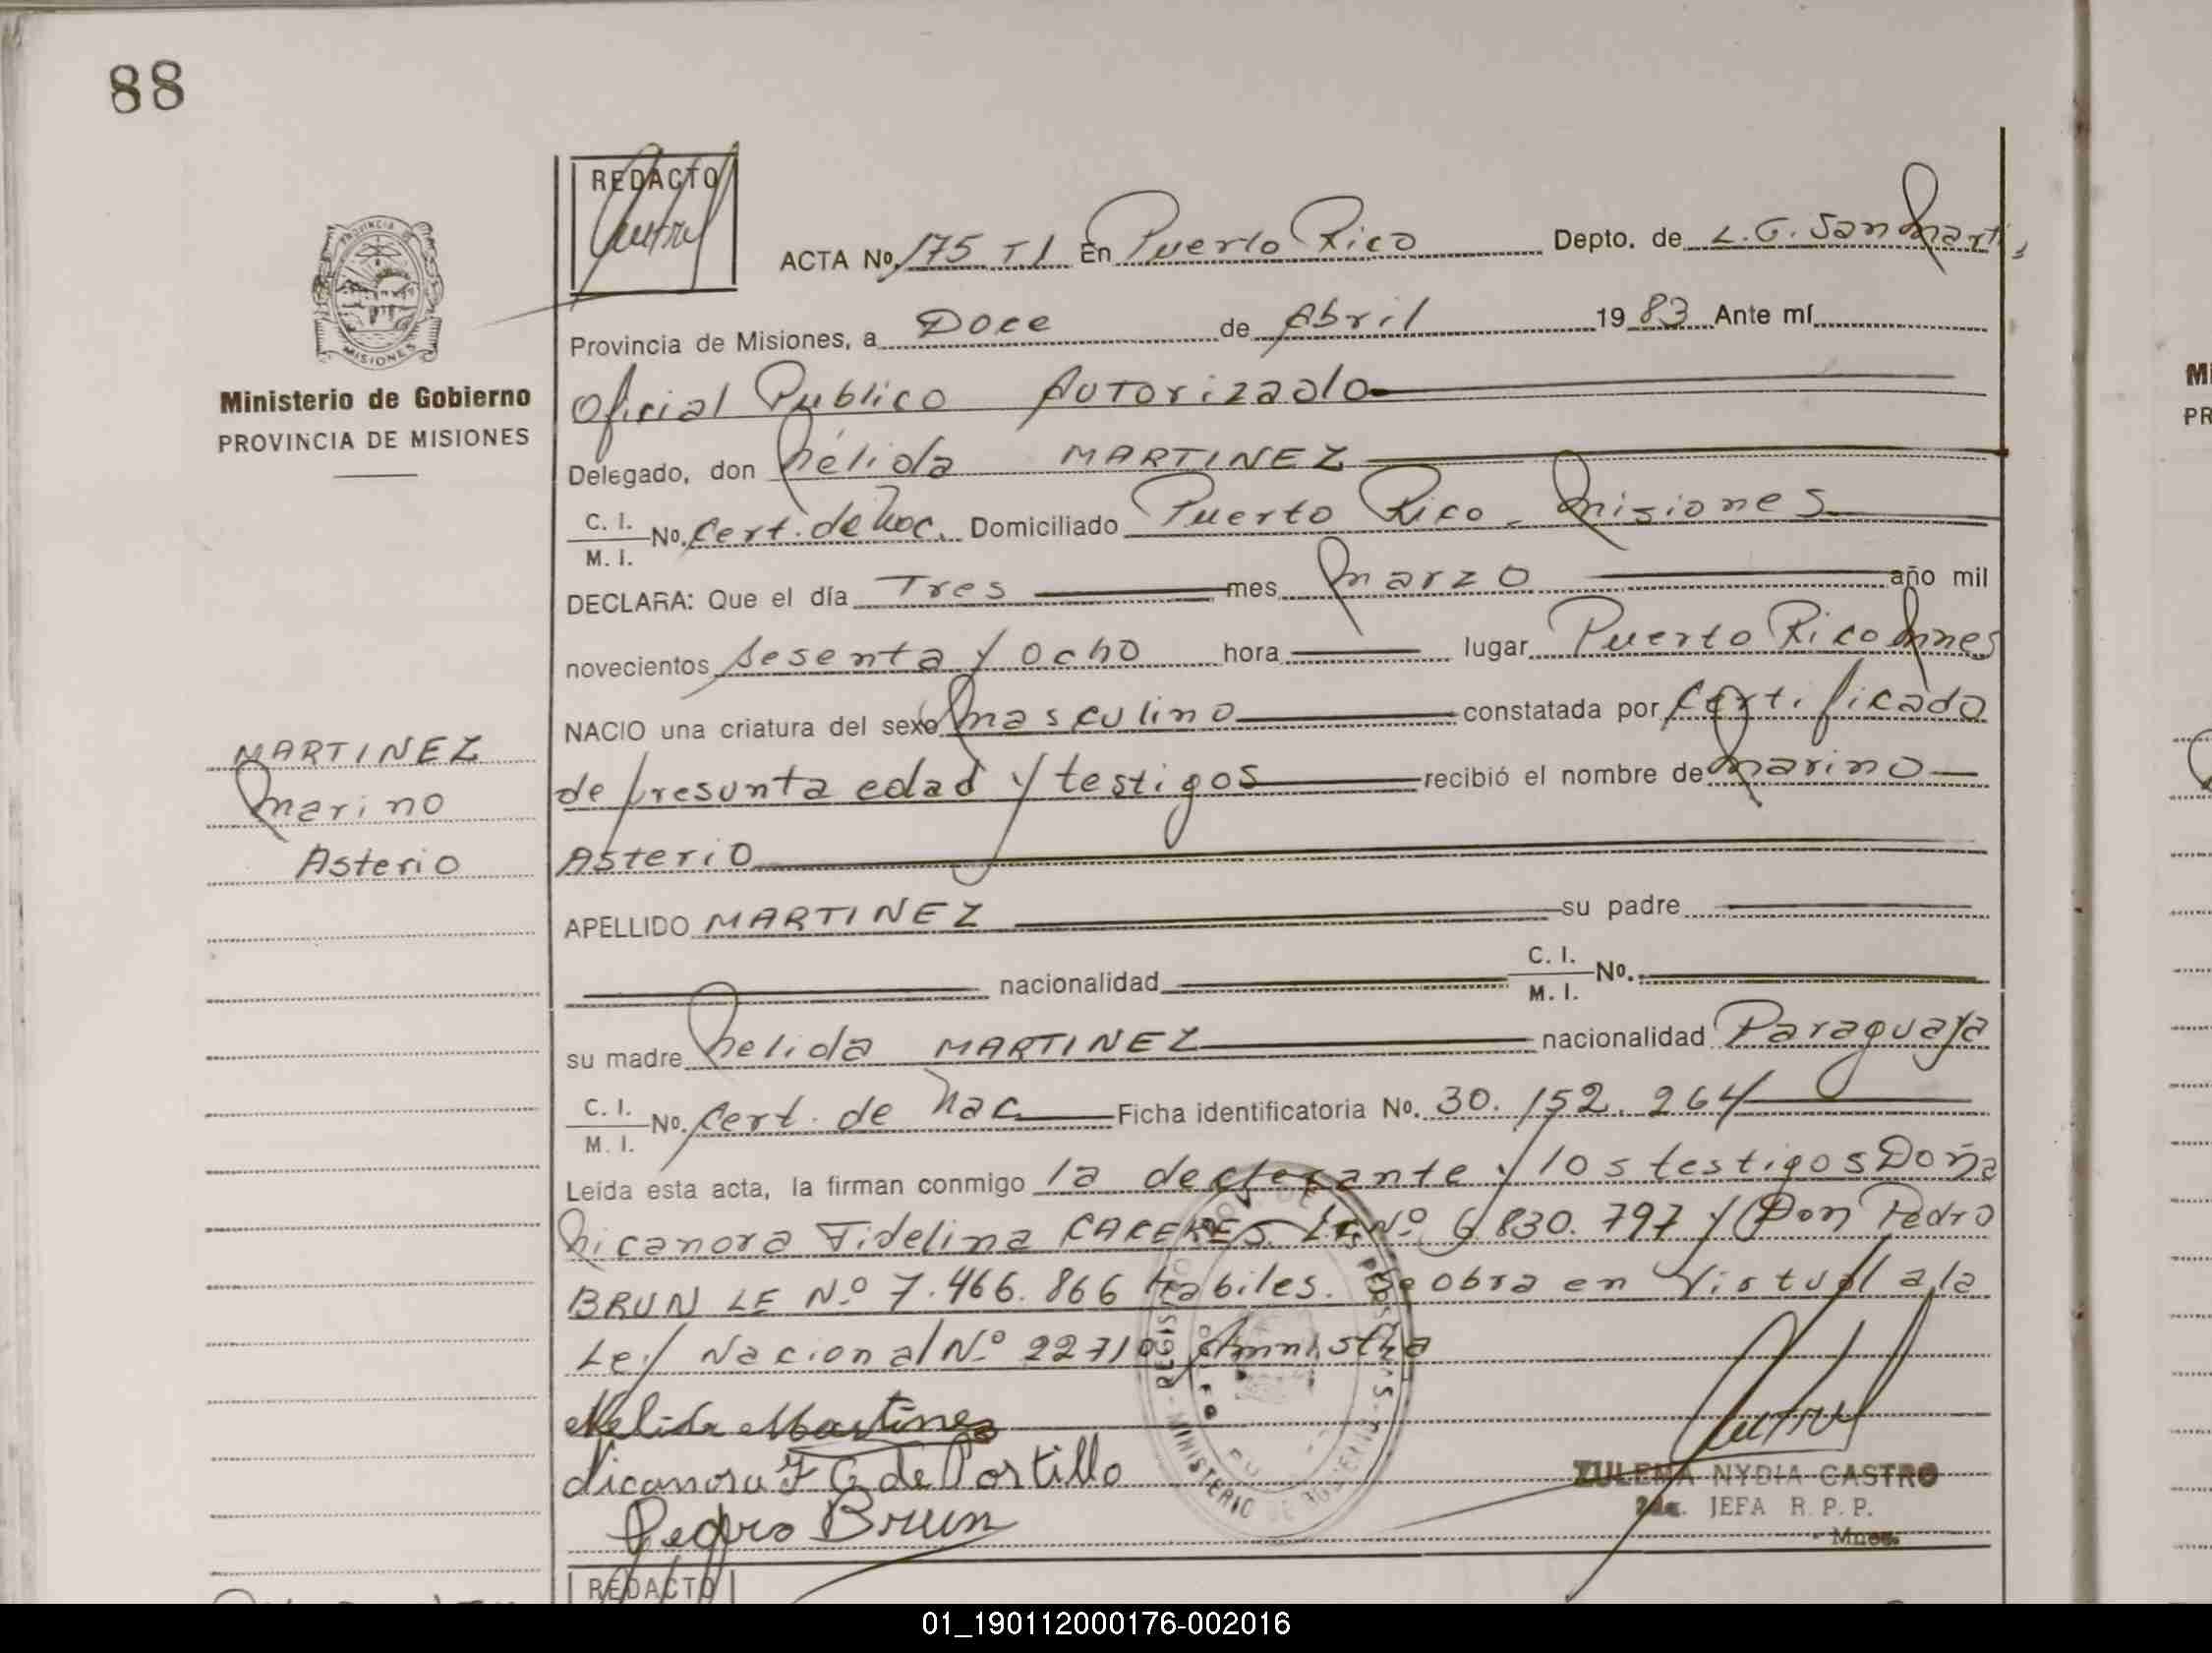 88
REDACTO
ACTA Nº 175 T I En Puerto Rico Depto. de L. G. San Martin
PROVINCIA DE
MISIONES
Provincia de Misiones, a Doce de Abril 1983 Ante mí
Ministerio de Gobierno
PROVINCIA DE MISIONES
Oficial Público Autorizado
Delegado, don Nélida MARTINEZ
C. I. M. I. No. Cert. de Nac. Domiciliado Puerto Rico - Misiones
DECLARA: Que el día Tres mes Marzo año mil
novecientos Sesenta y ocho hora lugar Puerto Rico Mnes
NACIO una criatura del sexo Masculino constatada por Certificado
MARTINEZ
Marino
Asterio
de presunta edad y testigos recibió el nombre de Marino
Asterio
APELLIDO MARTINEZ su padre
nacionalidad C. I. M. I. No.
su madre Nelida MARTINEZ nacionalidad Paraguaya
C. I. M. I. No. Cert. de Nac Ficha identificatoria No. 30.152.264
Leída esta acta, la firman conmigo la declarante y los testigos Doña
Nicanora Fidelina CACERES LE Nº 6 830.797 y Don Pedro
BRUN LE Nº 7.466.866 Habiles. Se obra en Virtud a la
Ley Nacional Nº 22710 Amnistia
Nelida Martinez
Nicanora F C de Portillo
Pedro Brun
MINISTERIO DE GOBIERNO
ZULEMA NYDIA CASTRO
JEFA R. P. P.
Mnes.
REDACTO
01_190112000176-002016